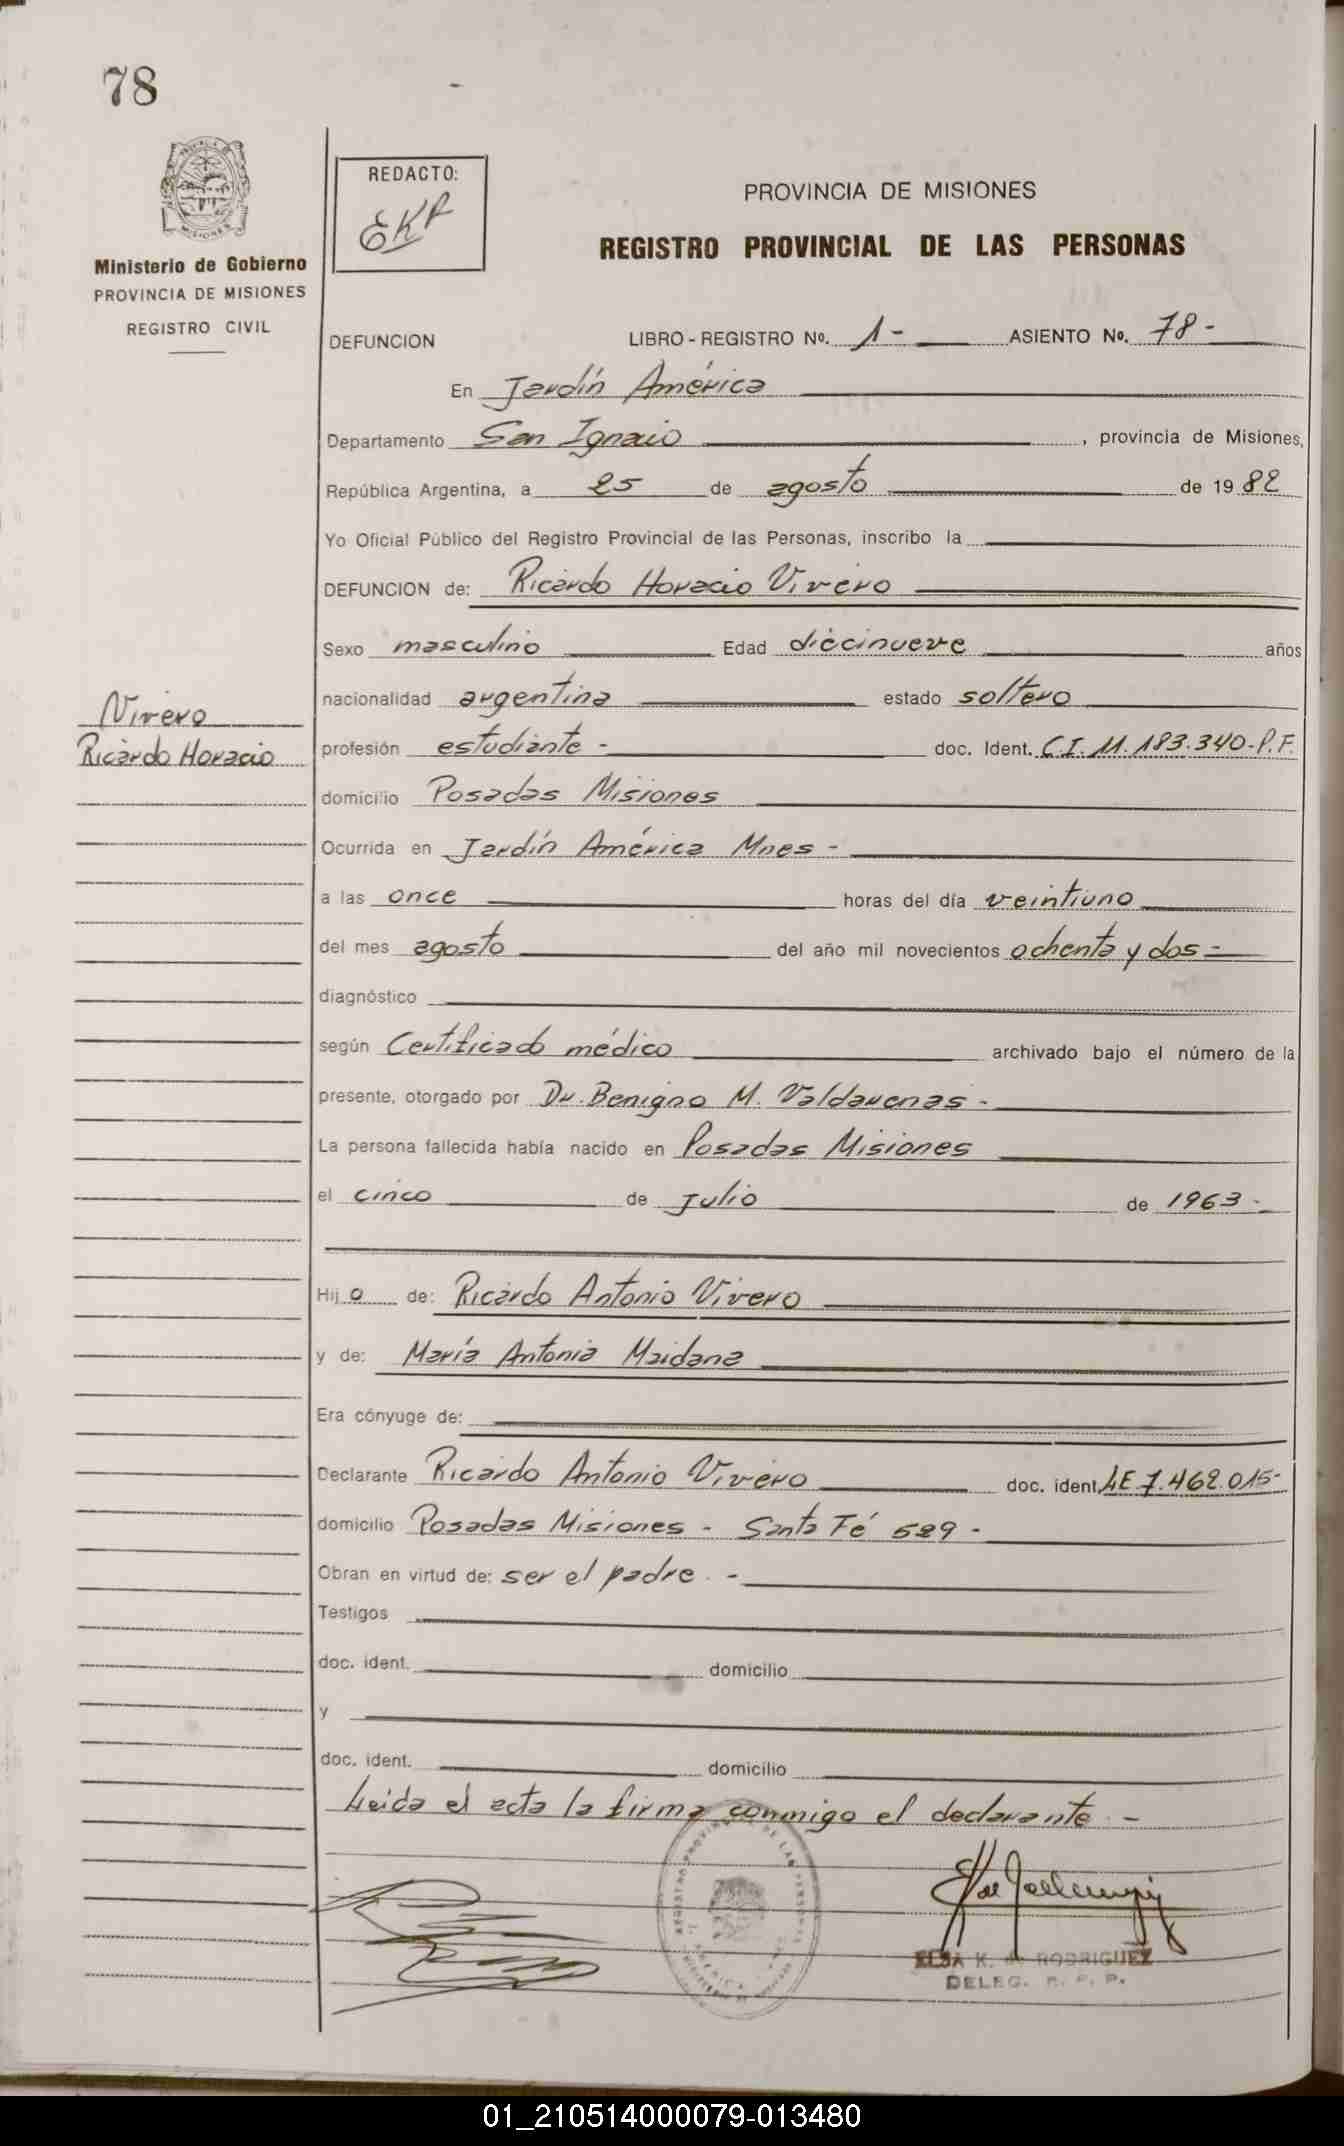 78
MISIONES
Ministerio de Gobierno
PROVINCIA DE MISIONES
REGISTRO CIVIL
REDACTO:
EKR
PROVINCIA DE MISIONES
REGISTRO PROVINCIAL DE LAS PERSONAS
DEFUNCION LIBRO - REGISTRO Nº. 1 - ASIENTO Nº. 78 -
En Jardín América
Departamento San Ignacio , provincia de Misiones,
República Argentina, a 25 de agosto de 19 82
Yo Oficial Público del Registro Provincial de las Personas, inscribo la
DEFUNCION de: Ricardo Horacio Vivero
Sexo masculino Edad diecinueve años
nacionalidad argentina estado soltero
Vivero
Ricardo Horacio
profesión estudiante - doc. Ident. C.I. 11.183.340-P.F.
domicilio Posadas Misiones
Ocurrida en Jardín América Mnes -
a las once horas del día veintiuno
del mes agosto del año mil novecientos ochenta y dos -
diagnóstico
según Certificado médico archivado bajo el número de la
presente, otorgado por Dr. Benigno M. Valdarenas -
La persona fallecida había nacido en Posadas Misiones
el cinco de Julio de 1963 -
Hij o de: Ricardo Antonio Vivero
y de: María Antonia Maidana
Era cónyuge de:
Declarante Ricardo Antonio Vivero doc. ident. LE 7.462.015-
domicilio Posadas Misiones - Santa Fé 529 -
Obran en virtud de: ser el padre. -
Testigos
doc. ident. domicilio
y
doc. ident. domicilio
Leida el acta la firma conmigo el declarante. -
REGISTRO PROVINCIAL DE LAS PERSONAS
ELSA K. de RODRIGUEZ
DELEG. R. P. P.
01_210514000079-013480